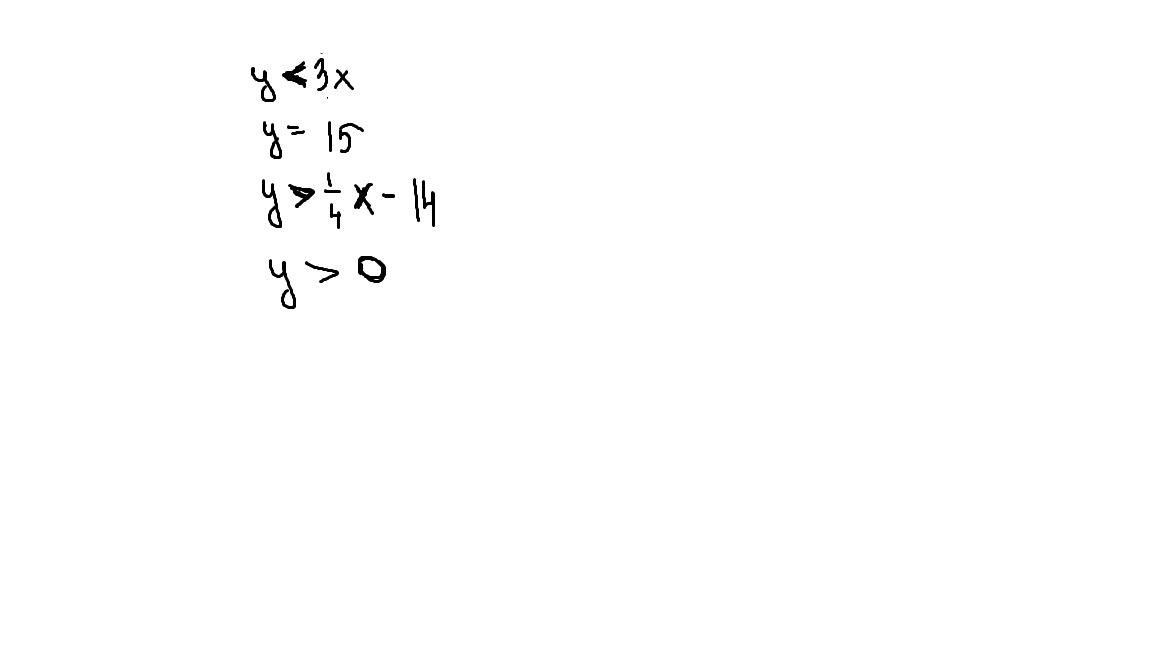 y < 3x
y = 15
y > 1/4 x - 14
y > 0